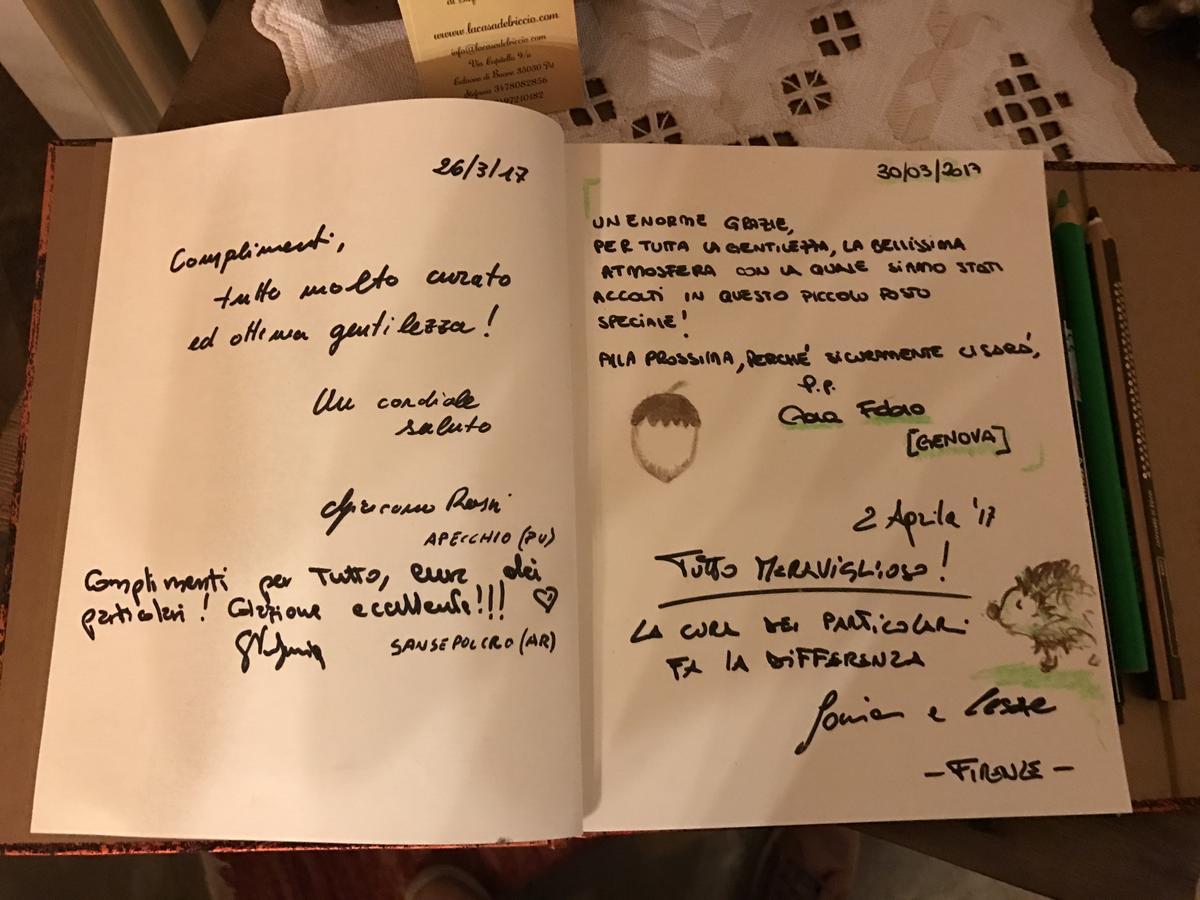 www.lacasadelriccio.com
info@lacasadelriccio.com
Via Capitello 9/a
35030 Pd
Stefania 3478082856
26/3/17
Complimenti,
tutto molto curato
ed ottima gentilezza!
Un cordiale
saluto
Giacomo Rossi
APECCHIO (PU)
Complimenti per TUTTO, cura dei
particolari! Colazione eccellente!!! ♡
SANSEPOLCRO (AR)
30/03/2017
UN ENORME GRAZIE,
PER TUTTA LA GENTILEZZA, LA BELLISSIMA
ATMOSFERA CON LA QUALE SIAMO STATI
ACCOLTI IN QUESTO PICCOLO POSTO
SPECIALE!
ALLA PROSSIMA, PERCHÉ SICURAMENTE CI SARÀ,
P.P.
Fabio
[GENOVA]
2 Aprile '17
TUTTO MERAVIGLIOSO!
LA CURA DEI PARTICOLARI
FA LA DIFFERENZA
e
- FIRENZE -